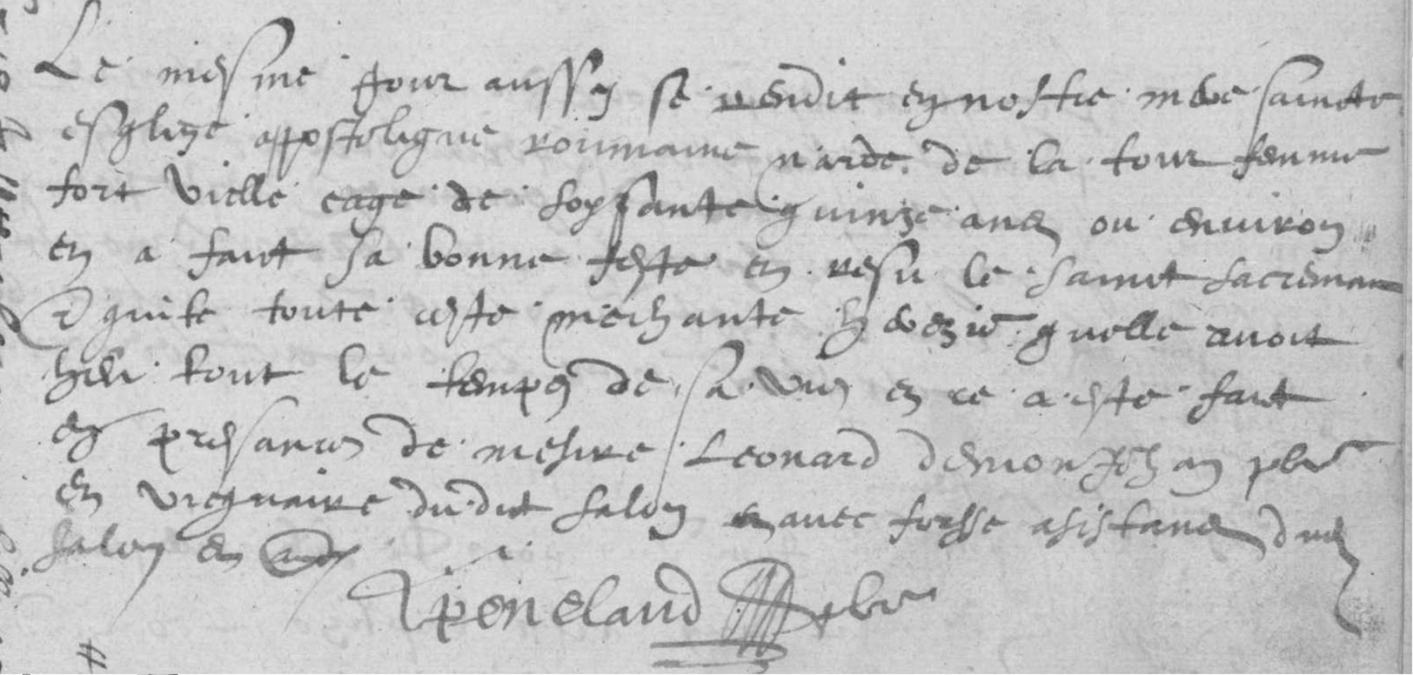 Le mesme jour aussy se rendit en nostre mere saincte
esglize appostoligue roumaine narde de la tour femme
fort vielle eage de soyssante quinze ans ou environ
en a faict sa bonne feste en resu le sainct sacreman
quite toute ceste mechante herezie quelle avoit
tout le temps de sa vie en ce a este faict
en presance de mesire Leonard demonjehan pbre
en vicquaire dudit salon en avec forsse asistans du
salon en
peneland pbre